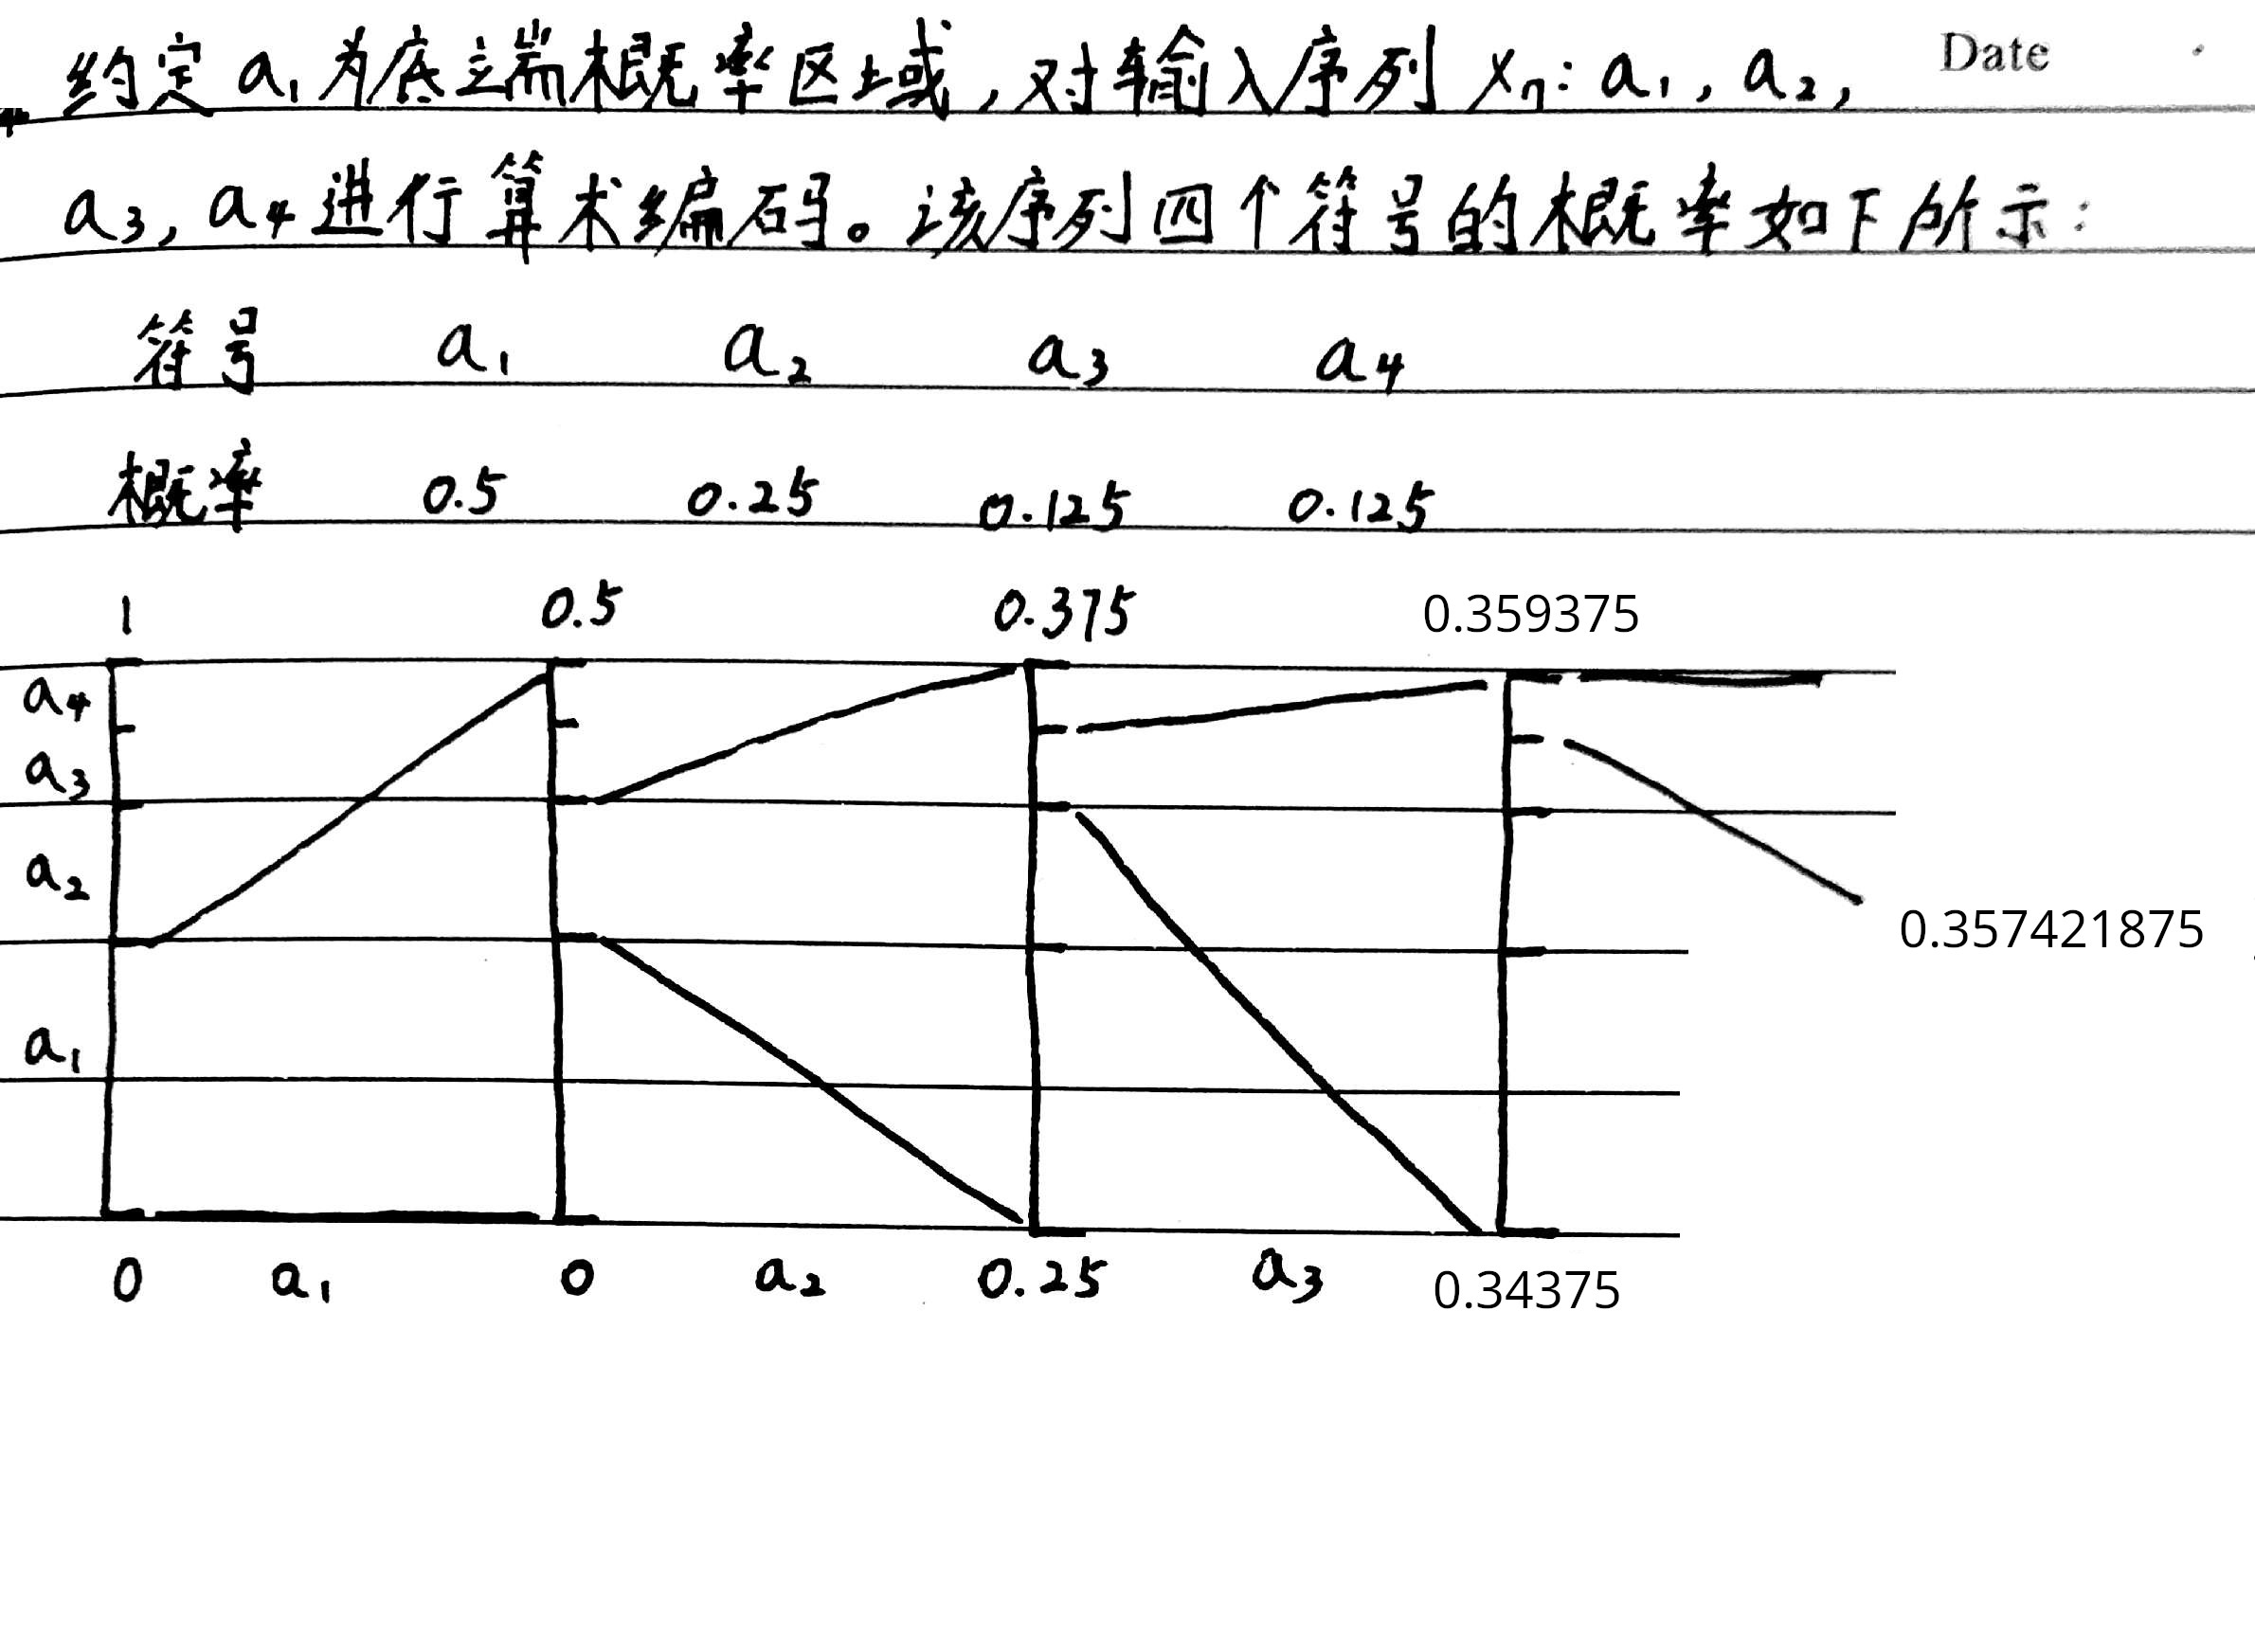 Date
约定 a₁ 为底端概率区域,对输入序列 Xn: a₁, a₂,
a₃, a₄ 进行算术编码。该序列四个符号的概率如下所示:
符号 a₁ a₂ a₃ a₄
概率 0.5 0.25 0.125 0.125
1 0.5 0.375 0.359375
a₄
a₃
a₂
0.357421875
a₁
0 a₁ 0 a₂ 0.25 a₃ 0.34375